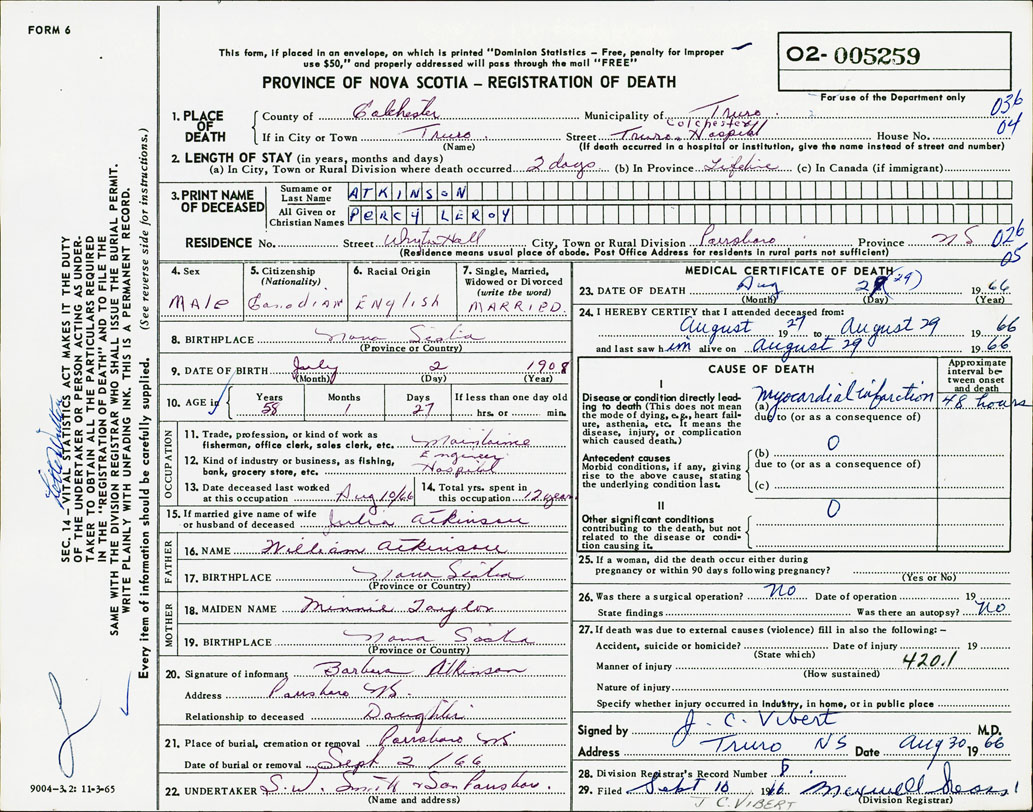 FORM 6
This form, if placed in an envelope, on which is printed "Dominion Statistics – Free, penalty for improper
use $50," and properly addressed will pass through the mail "FREE"
O2- 005259
PROVINCE OF NOVA SCOTIA – REGISTRATION OF DEATH
For use of the Department only
036
04
1. PLACE OF DEATH
County of Colchester Municipality of Truro
If in City or Town Truro Street Colchester Truro Hospital House No.
(Name) (If death occurred in a hospital or institution, give the name instead of street and number)
2. LENGTH OF STAY (in years, months and days)
(a) In City, Town or Rural Division where death occurred 2 days (b) In Province Lifetime (c) In Canada (if immigrant)
3. PRINT NAME OF DECEASED
Surname or Last Name ATKINSON
All Given or Christian Names PERCY LEROY
RESIDENCE No. Street Hall City, Town or Rural Division Parrsboro Province NS
026
05
(Residence means usual place of abode. Post Office Address for residents in rural parts not sufficient)
4. Sex MALE
5. Citizenship (Nationality) Canadian
6. Racial Origin ENglish
7. Single, Married, Widowed or Divorced (write the word) MARRIED.
8. BIRTHPLACE Nova Scotia
(Province or Country)
9. DATE OF BIRTH July 2 1908
(Month) (Day) (Year)
10. AGE in Years 58 Months 1 Days 27 If less than one day old hrs. or min.
OCCUPATION
11. Trade, profession, or kind of work as fisherman, office clerk, sales clerk, etc.
Engineer
12. Kind of industry or business, as fishing, bank, grocery store, etc. Hospital
13. Date deceased last worked at this occupation Aug 10/66
14. Total yrs. spent in this occupation 12 years
15. If married give name of wife or husband of deceased Julia Atkinson
FATHER
16. NAME William Atkinson
17. BIRTHPLACE Nova Scotia
(Province or Country)
MOTHER
18. MAIDEN NAME Minnie Taylor
19. BIRTHPLACE Nova Scotia
(Province or Country)
20. Signature of informant Barbara Atkinson
Address Parrsboro NS.
Relationship to deceased Daughter
21. Place of burial, cremation or removal Parrsboro NS
Date of burial or removal Sept 2/66
22. UNDERTAKER S.W. Smith & Son Parrsboro.
(Name and address)
MEDICAL CERTIFICATE OF DEATH
23. DATE OF DEATH Aug (29) 1966
(Month) (Day) (Year)
24. I HEREBY CERTIFY that I attended deceased from:
August 27 to August 29 1966
and last saw him alive on August 29 1966
CAUSE OF DEATH
Approximate interval between onset and death
I
Disease or condition directly leading to death (This does not mean the mode of dying, e.g., heart failure, asthenia, etc. It means the disease, injury, or complication which caused death.)
(a) myocardial infarction 48 hours
due to (or as a consequence of)
Antecedent causes
Morbid conditions, if any, giving rise to the above cause, stating the underlying condition last.
(b) 0
due to (or as a consequence of)
(c)
II
Other significant conditions
contributing to the death, but not related to the disease or condition causing it.
0
25. If a woman, did the death occur either during
pregnancy or within 90 days following pregnancy?
(Yes or No)
26. Was there a surgical operation? NO Date of operation 19
State findings Was there an autopsy? NO
27. If death was due to external causes (violence) fill in also the following: –
Accident, suicide or homicide? Date of injury 19
(State which)
Manner of injury 420.1
(How sustained)
Nature of injury
Specify whether injury occurred in Industry, in home, or in public place
Signed by J. C. Vibert M.D.
Address Truro NS Date Aug 30 1966
28. Division Registrar's Record Number 8
29. Filed Sept 10 1966 Maxwell
(Division Registrar)
J C. VIBERT
SEC. 14 – VITAL STATISTICS ACT MAKES IT THE DUTY
OF THE UNDERTAKER OR PERSON ACTING AS UNDER-
TAKER TO OBTAIN ALL THE PARTICULARS REQUIRED
IN THE "REGISTRATION OF DEATH" AND TO FILE THE
SAME WITH THE DIVISION REGISTRAR WHO SHALL ISSUE THE BURIAL PERMIT.
WRITE PLAINLY WITH UNFADING INK. THIS IS A PERMANENT RECORD.
Every item of information should be carefully supplied. (See reverse side for instructions.)
9004–3.2: 11-3-65